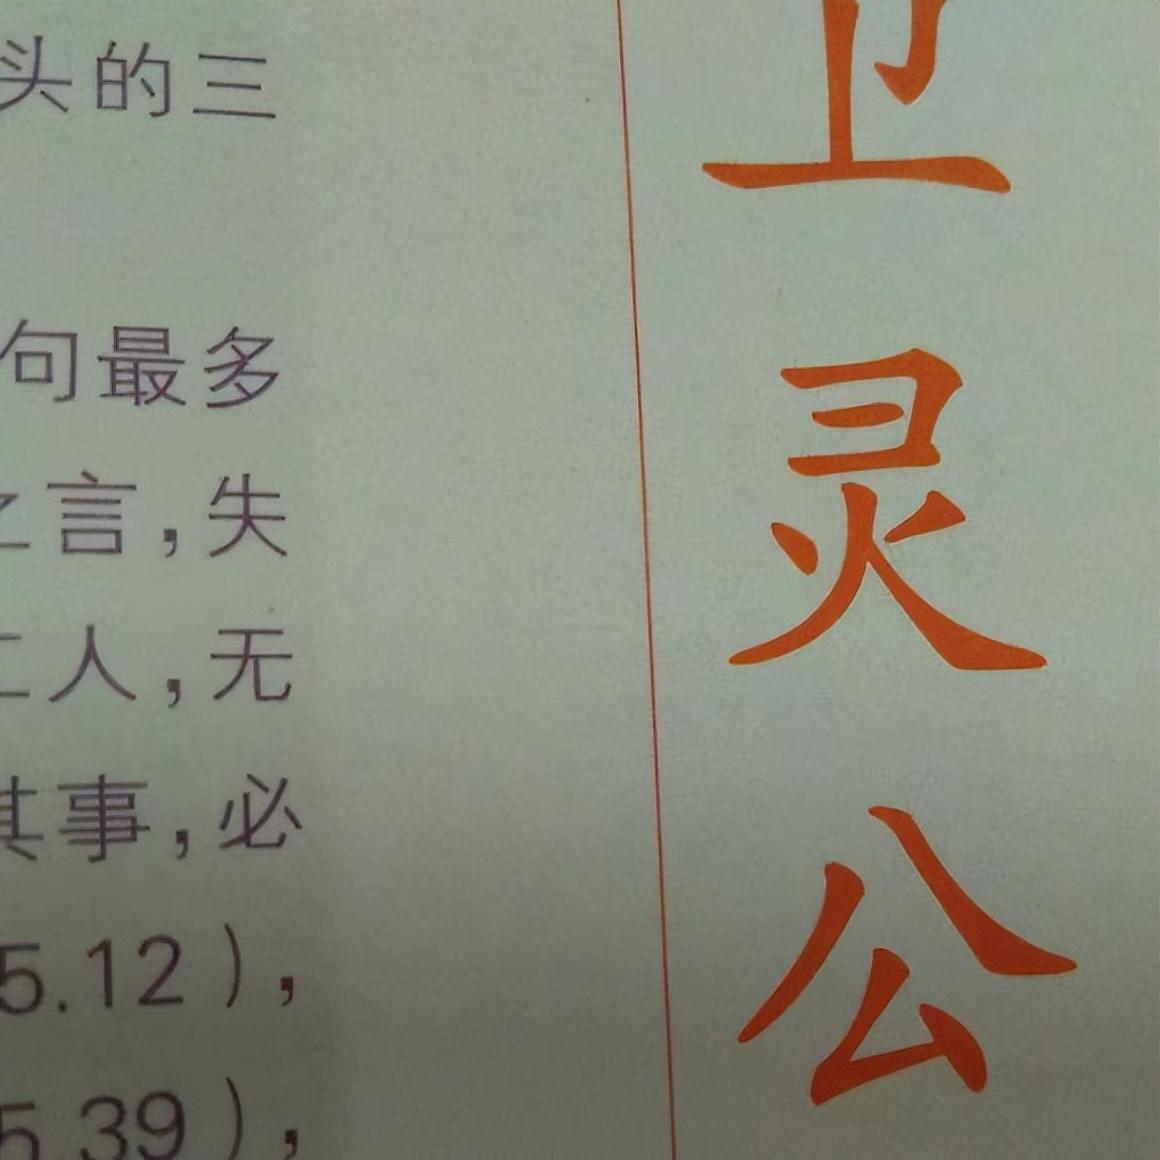 头的三
句最多
之言，失
人，无
其事，必
5.12），
5.39），
卫灵公